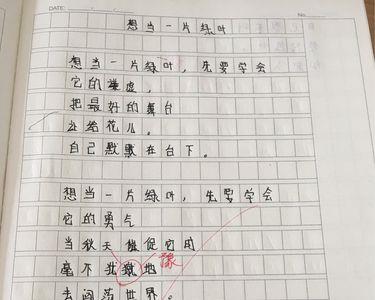 DATE: / / No.
想当一片绿叶
想当一片绿叶，先要学会
它的谦虚，
把最好的舞台
让给花儿。
自己默默在台下。
想当一片绿叶，先要学会
它的勇气
当秋天催促它时
豫
毫不犹地
去闯荡世界。